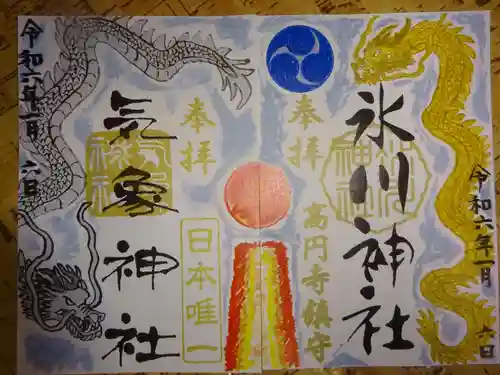 令和六年一月六日
奉拝
氷川神社
高円寺鎮守
令和六年一月六日
奉拝
気象神社
日本唯一